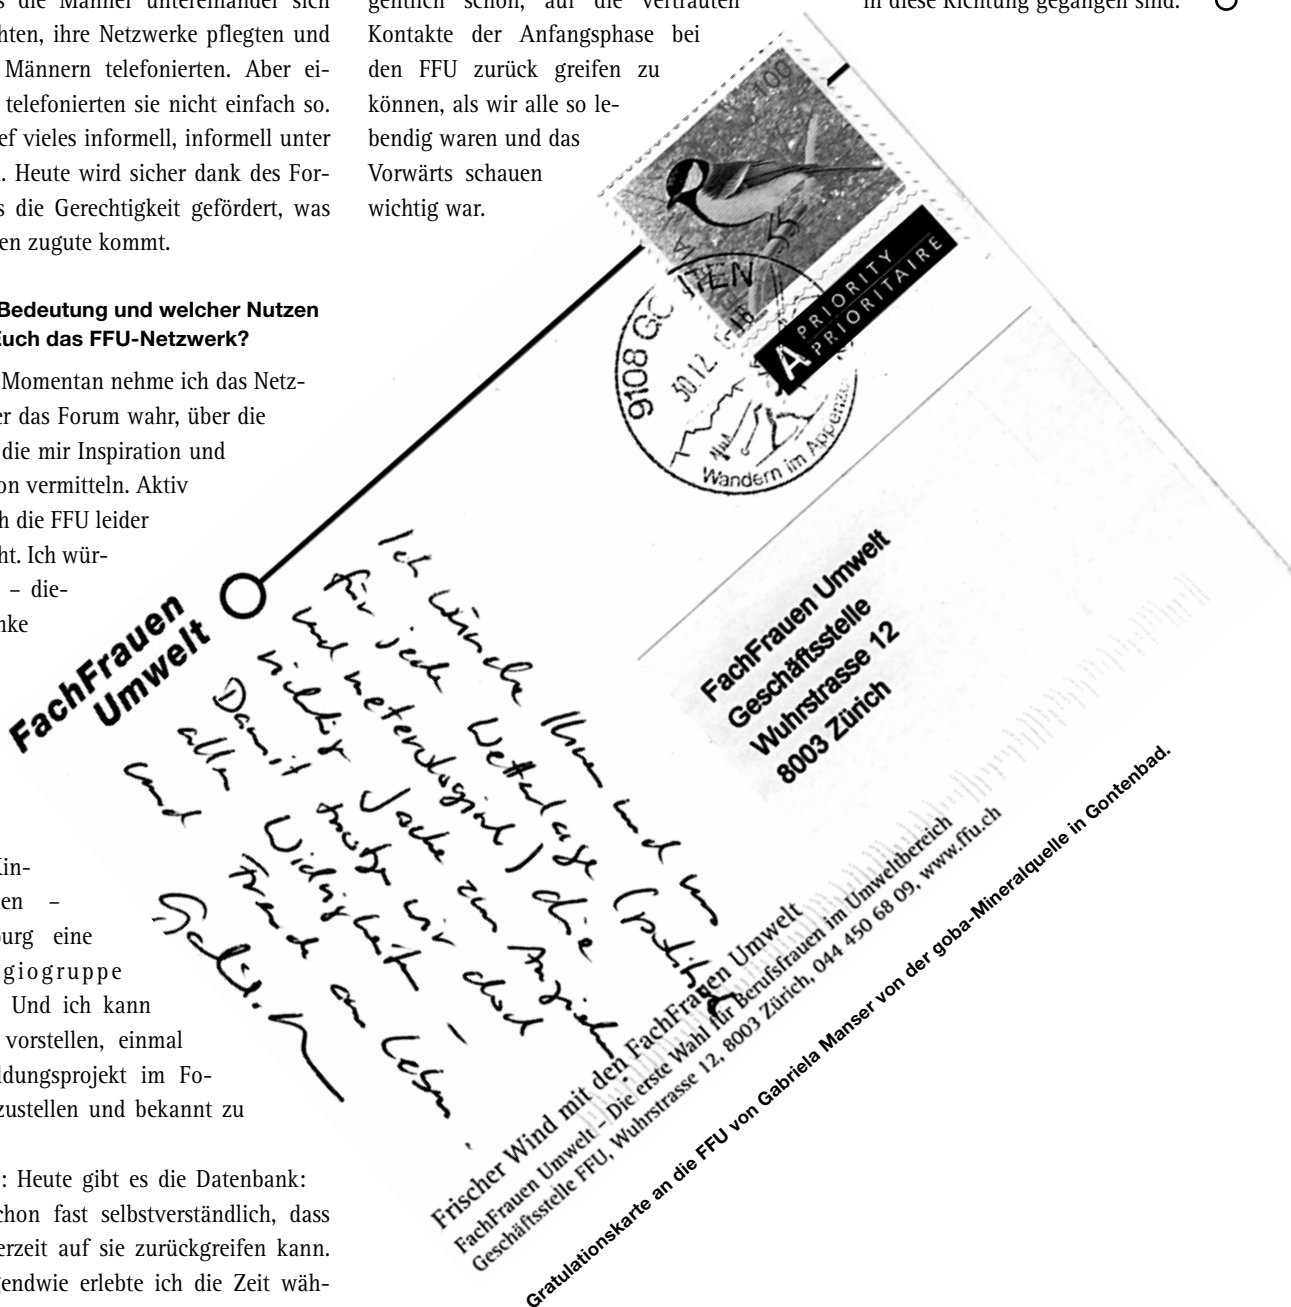 s die Männer untereinander sich
hten, ihre Netzwerke pflegten und
Männern telefonierten. Aber ei-
telefonierten sie nicht einfach so.
ef vieles informell, informell unter
. Heute wird sicher dank des For-
s die Gerechtigkeit gefördert, was
en zugute kommt.
Bedeutung und welcher Nutzen
Euch das FFU-Netzwerk?
Momentan nehme ich das Netz-
er das Forum wahr, über die
die mir Inspiration und
on vermitteln. Aktiv
h die FFU leider
ht. Ich wür-
– die-
nke
Kin-
en –
burg eine
giogruppe
Und ich kann
vorstellen, einmal
ldungsprojekt im Fo-
zustellen und bekannt zu
: Heute gibt es die Datenbank:
chon fast selbstverständlich, dass
erzeit auf sie zurückgreifen kann.
gendwie erlebte ich die Zeit wäh-
gentlich schön, auf die vertrauten
Kontakte der Anfangsphase bei
den FFU zurück greifen zu
können, als wir alle so le-
bendig waren und das
Vorwärts schauen
wichtig war.
in diese Richtung gegangen sind.
100
A PRIORITY
PRIORITAIRE
9108 GO TEN
30.12.
Wandern im Appenze
FachFrauen
Umwelt
Ich wünsche Ihnen und uns
für jede Wetterlage (politisch
und meteorologisch) die
richtige Jacke zum Anziehen
Damit trotzen wir doch
allen Widrigkeiten –
und Freude am Leben.
FachFrauen Umwelt
Geschäftsstelle
Wuhrstrasse 12
8003 Zürich
Frischer Wind mit den FachFrauen Umwelt
FachFrauen Umwelt – Die erste Wahl für Berufsfrauen im Umweltbereich
Geschäftsstelle FFU, Wuhrstrasse 12, 8003 Zürich, 044 450 68 09, www.ffu.ch
Gratulationskarte an die FFU von Gabriela Manser von der goba-Mineralquelle in Gontenbad.